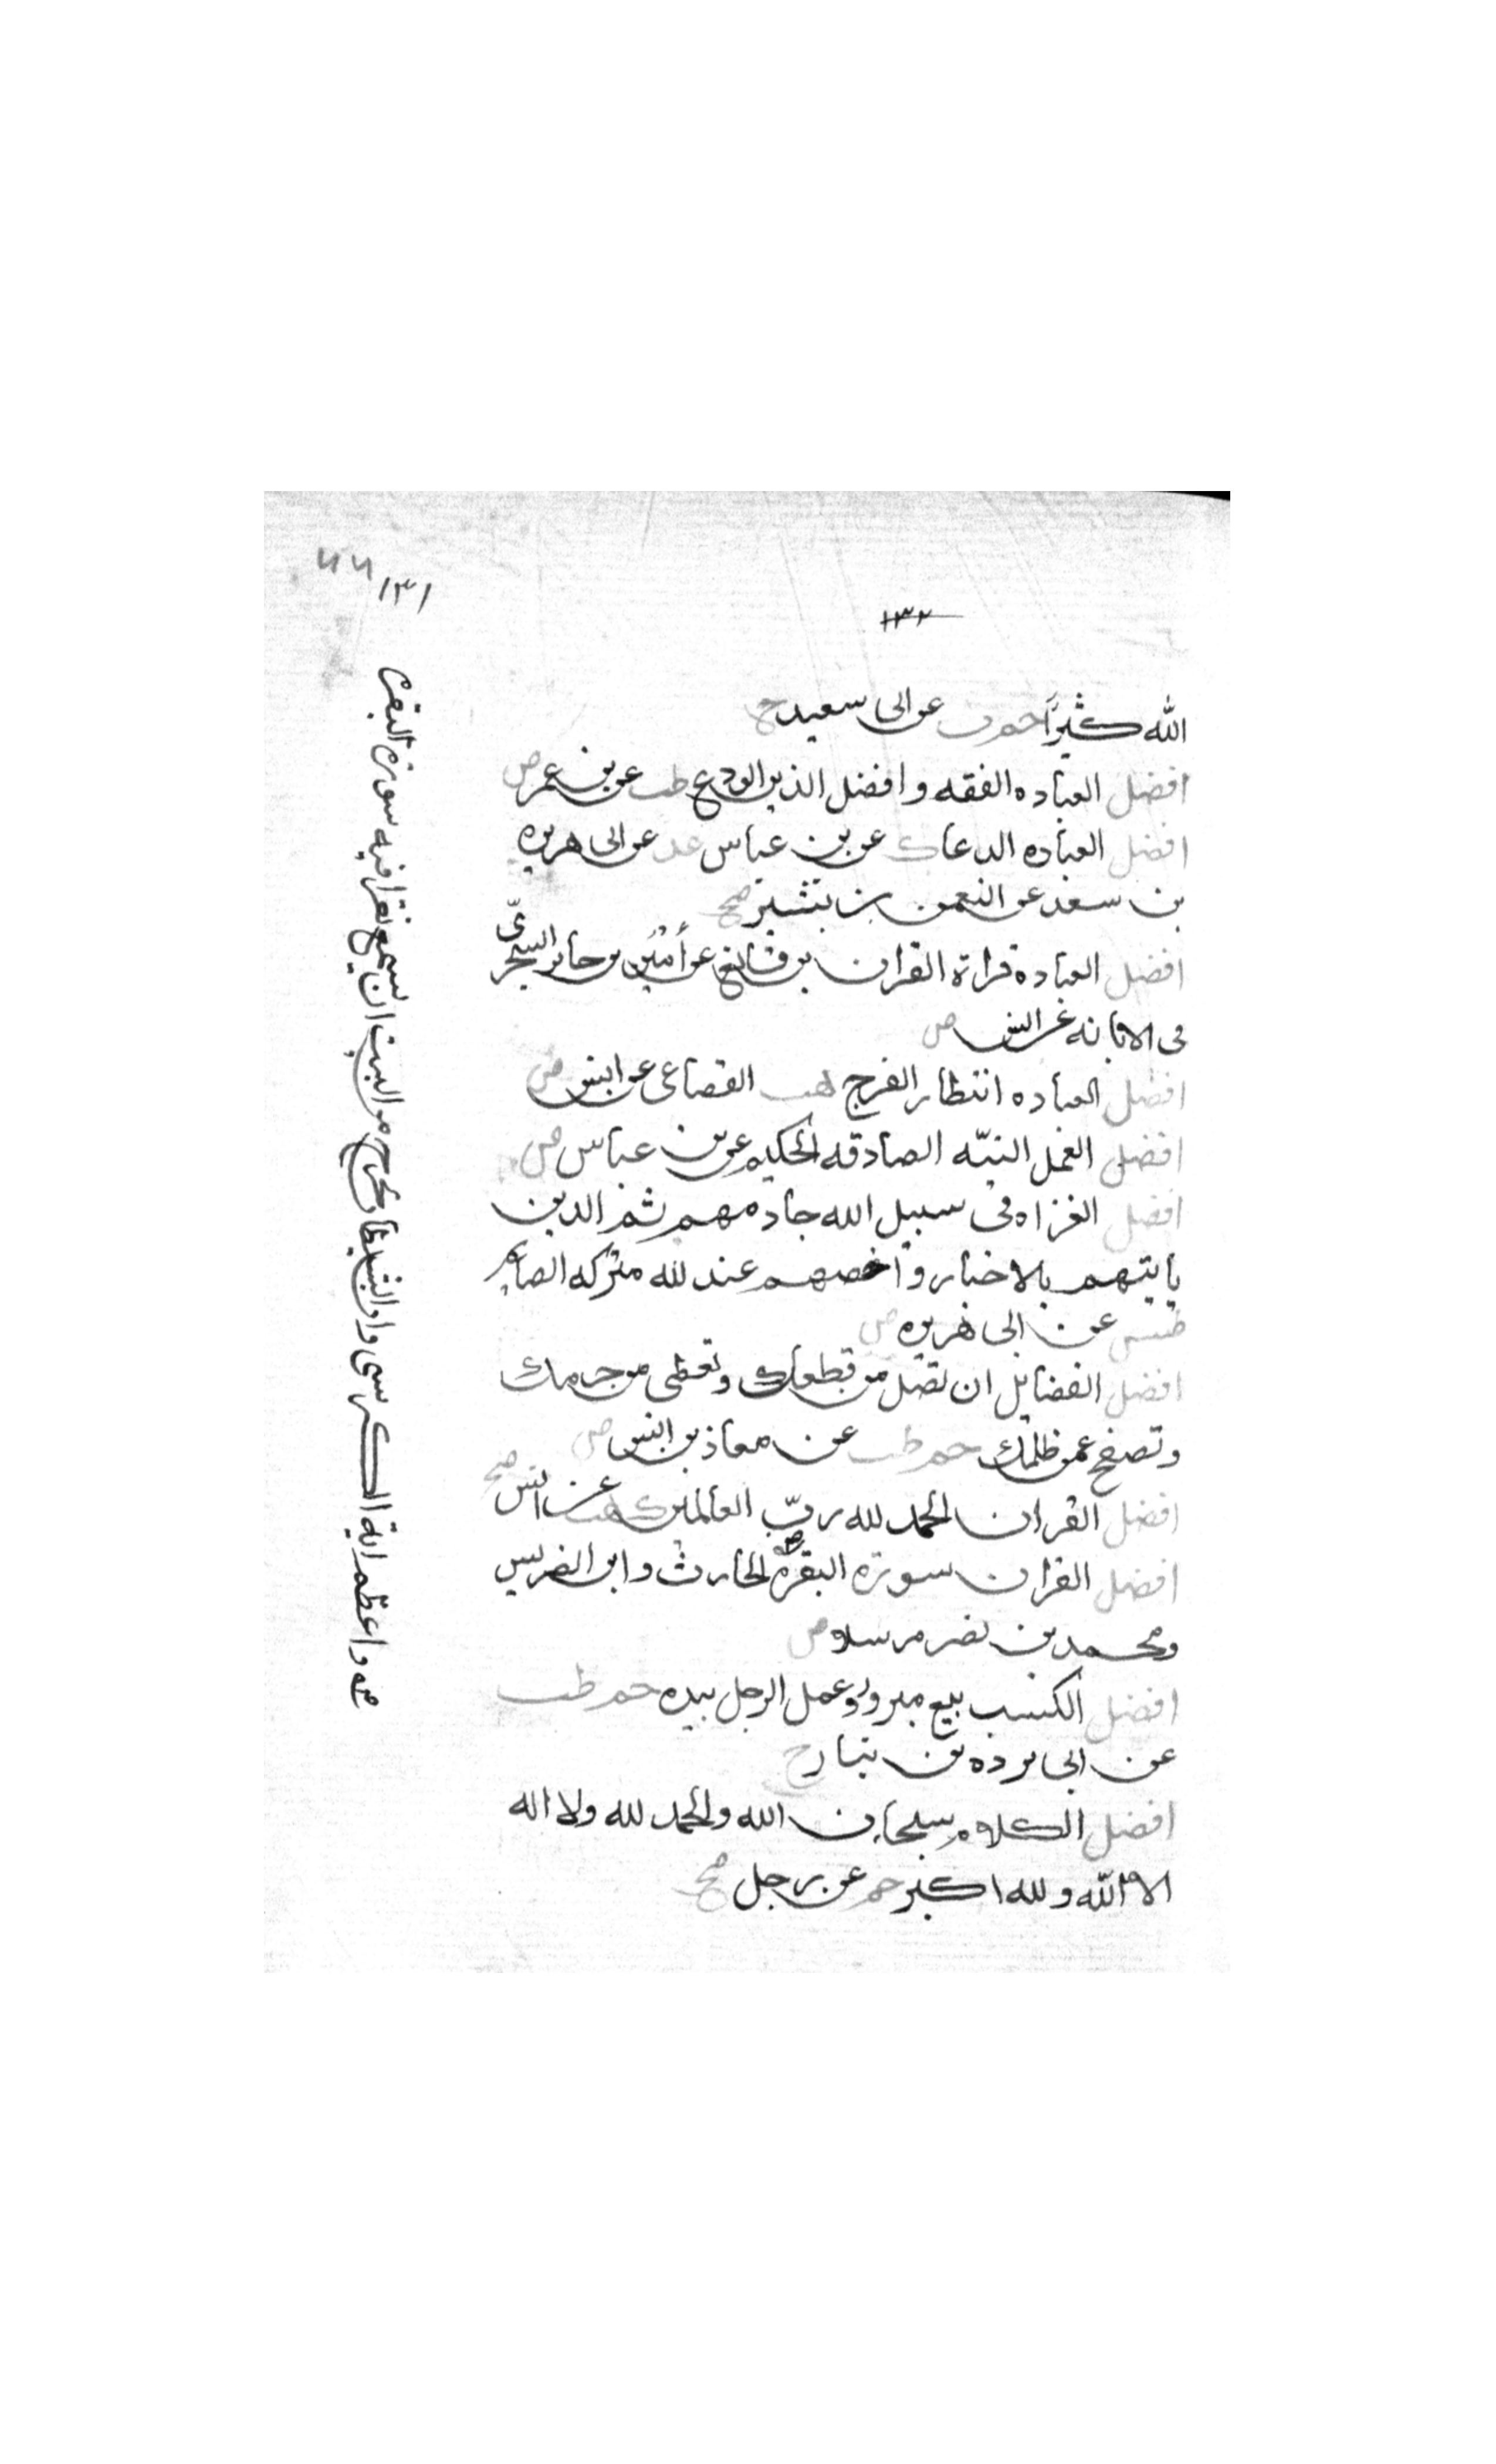 ١٣١
١٣٢
الله كثيرا حم ت عن ابى سعيد ح
افضل العباده الفقه وافضل الدين الورع طب عن بن عمر ض
افضل العباده الدعا ك عن بن عباس عد عن ابى هريره
بن سعد عن النعمن بن بشير صح
افضل العباده قراة القران بن قانع عن أسير بن جابر السجزىّ
فى الابانه عن انس ض
افضل العباده انتظار الفرج هب القضاعى عن انس ض
افضل العمل النيّه الصادقه الحكيم عن بن عباس ض
افضل الغزاه فى سبيل الله خادمهم ثم الذين
ياتيهم بالاخبار واخصهم عند لله منزله الصايم
طس عن ابى هريره ض
افضل الفضايل ان تصل من قطعك وتعطى من حرمك
وتصفح عمن ظلمك حم طب عن معاذ بن انس ض
افضل القران الحمد لله ربّ العالمين ك هب عن انس صح
افضل القران سورة البقره الحارث وابن الضريس
ومحمد بن نصر مرسلا ض
افضل الكسب بيع مبرور وعمل الرجل بيده حم طب
عن ابى برده بن نيار ح
افضل الكلام سبحان الله والحمد لله ولا اله
الا الله ولله اكبر حم عن رجل صح
واعظم اية الكرسى وان الشيطان ليخرج من البيت ان يسمع تقرا فيه سورة البقره